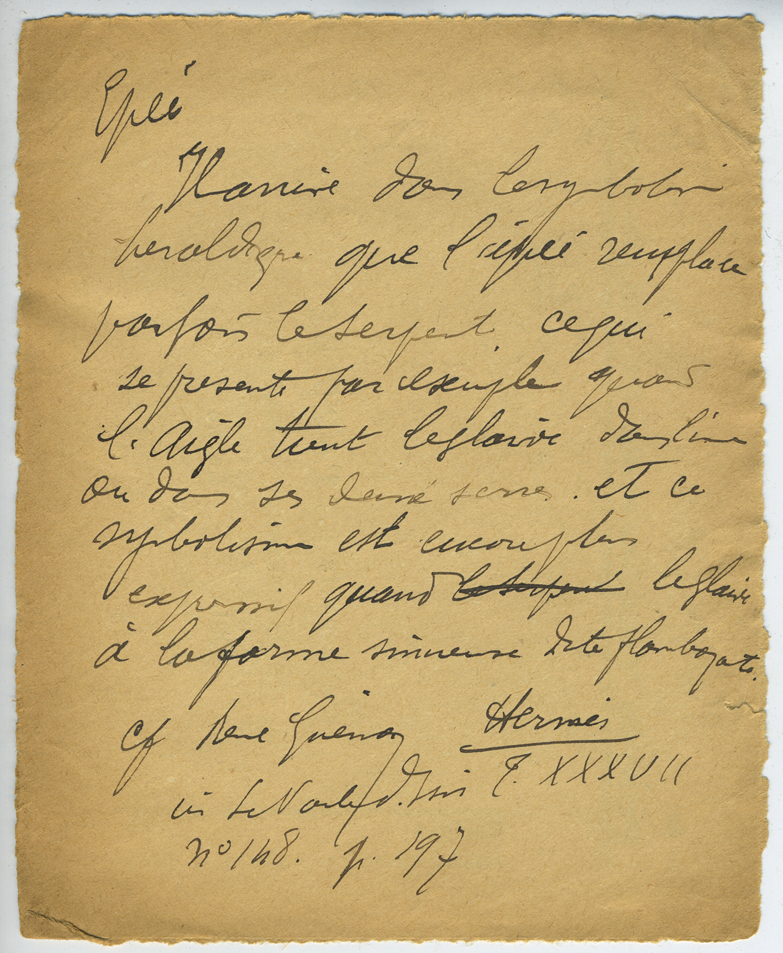 Epée
Il arrive dans le symbolisme
heraldique que l'épée remplace
parfois le serpent, ce qui
se presente par exemple quand
l'Aigle tient le glaive dans l'une
ou dans ses deux serres. et ce
symbolisme est encore plus
expressif quand le serpent le glaive
à la forme sinueuse dite flamboyante.
cf René Guénon Hermès
in Le Voile d'Isis T. XXXVII
n° 148. p. 197